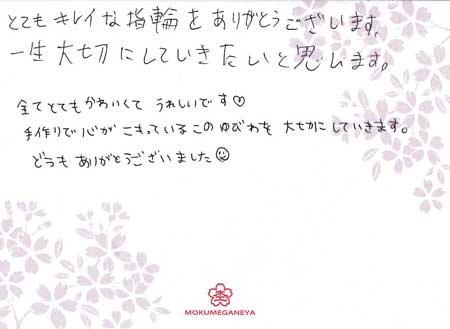 とてもキレイな指輪をありがとうございます。
一生大切にしていきたいと思います。
全てとてもかわいくて うれしいです♡
手作りで心がこもっているこのゆびわを 大切にしていきます。
どうもありがとうございました☺
MOKUMEGANEYA